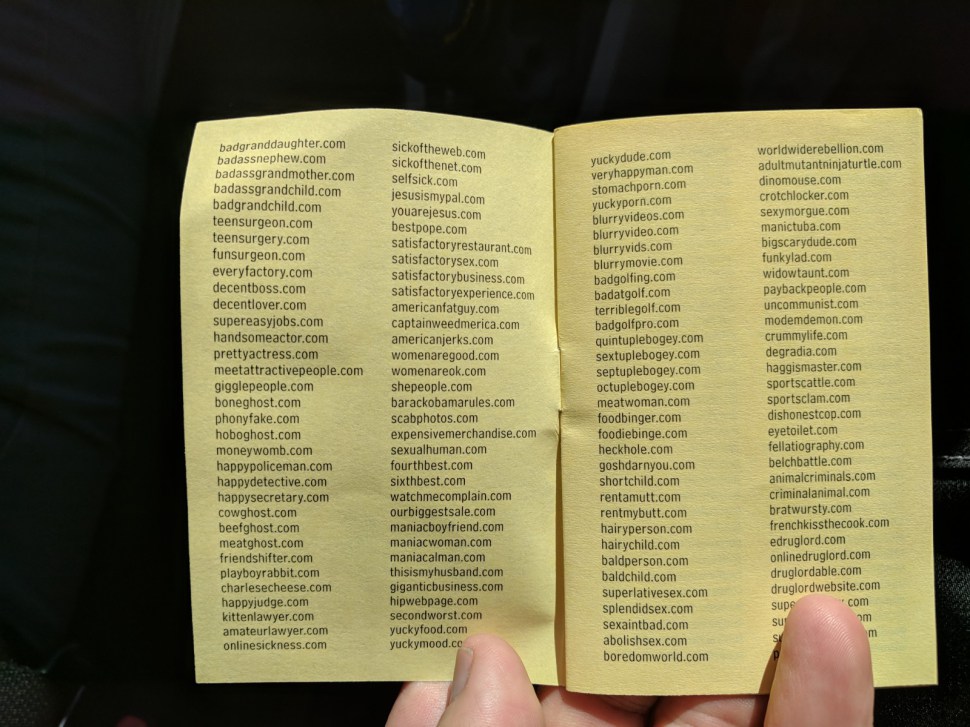 badgranddaughter.com
badassnephew.com
badassgrandmother.com
badassgrandchild.com
badgrandchild.com
teensurgeon.com
teensurgery.com
funsurgeon.com
everyfactory.com
decentboss.com
decentlover.com
supereasyjobs.com
handsomeactor.com
prettyactress.com
meetattractivepeople.com
gigglepeople.com
boneghost.com
phonyfake.com
hoboghost.com
moneywomb.com
happypoliceman.com
happydetective.com
happysecretary.com
cowghost.com
beefghost.com
meatghost.com
friendshifter.com
playboyrabbit.com
charlesecheese.com
happyjudge.com
kittenlawyer.com
amateurlawyer.com
onlinesickness.com
sickoftheweb.com
sickofthenet.com
selfsick.com
jesusismypal.com
youarejesus.com
bestpope.com
satisfactoryrestaurant.com
satisfactorysex.com
satisfactorybusiness.com
satisfactoryexperience.com
americanfatguy.com
captainweedmerica.com
americanjerks.com
womenaregood.com
womenareok.com
shepeople.com
barackobamarules.com
scabphotos.com
expensivemerchandise.com
sexualhuman.com
fourthbest.com
sixthbest.com
watchmecomplain.com
ourbiggestsale.com
maniacboyfriend.com
maniacwoman.com
maniacalman.com
thisismyhusband.com
giganticbusiness.com
hipwebpage.com
secondworst.com
yuckyfood.com
yuckymood.co
yuckydude.com
veryhappyman.com
stomachporn.com
yuckyporn.com
blurryvideos.com
blurryvideo.com
blurryvids.com
blurrymovie.com
badgolfing.com
badatgolf.com
terriblegolf.com
badgolfpro.com
quintuplebogey.com
sextuplebogey.com
septuplebogey.com
octuplebogey.com
meatwoman.com
foodbinger.com
foodiebinge.com
heckhole.com
goshdarnyou.com
shortchild.com
rentamutt.com
rentmybutt.com
hairyperson.com
hairychild.com
baldperson.com
baldchild.com
superlativesex.com
splendidsex.com
sexaintbad.com
abolishsex.com
boredomworld.com
worldwiderebellion.com
adultmutantninjaturtle.com
dinomouse.com
crotchlocker.com
sexymorgue.com
manictuba.com
bigscarydude.com
funkylad.com
widowtaunt.com
paybackpeople.com
uncommunist.com
modemdemon.com
crummylife.com
degradia.com
haggismaster.com
sportscattle.com
sportsclam.com
dishonestcop.com
eyetoilet.com
fellatiography.com
belchbattle.com
animalcriminals.com
criminalanimal.com
bratwursty.com
frenchkissthecook.com
edruglord.com
onlinedruglord.com
druglordable.com
druglordwebsite.com